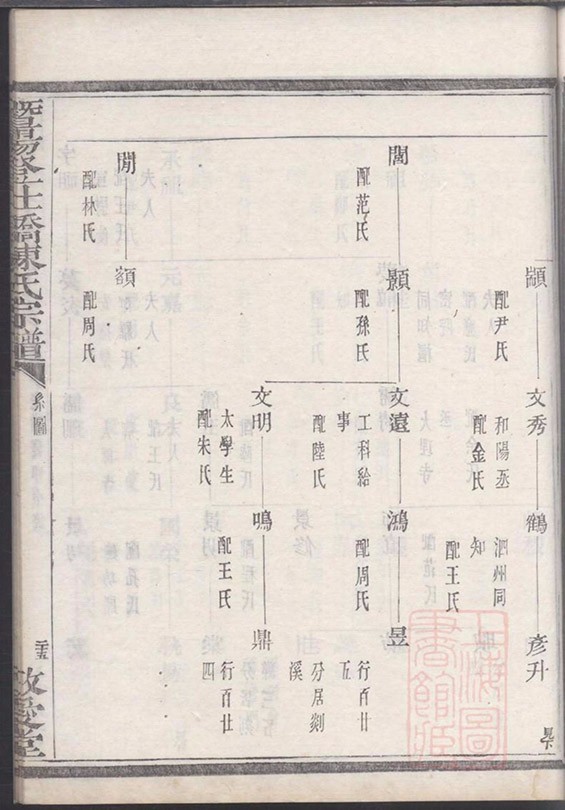 顓
配尹氏
文秀
和陽丞
配金氏
鶴
泗州同
知
配王氏
彥升
見下
闓
配范氏
顥
配孫氏
文遠
工科給
事
配陸氏
鴻
配周氏
昱
行百廿
五
分居剡
溪
文明
太學生
配朱氏
鳴
配王氏
鼎
行百廿
四
閒
配林氏
額
配周氏
暨陽登仕橋陳氏宗譜
系圖
敬愛堂
上海圖
書館藏